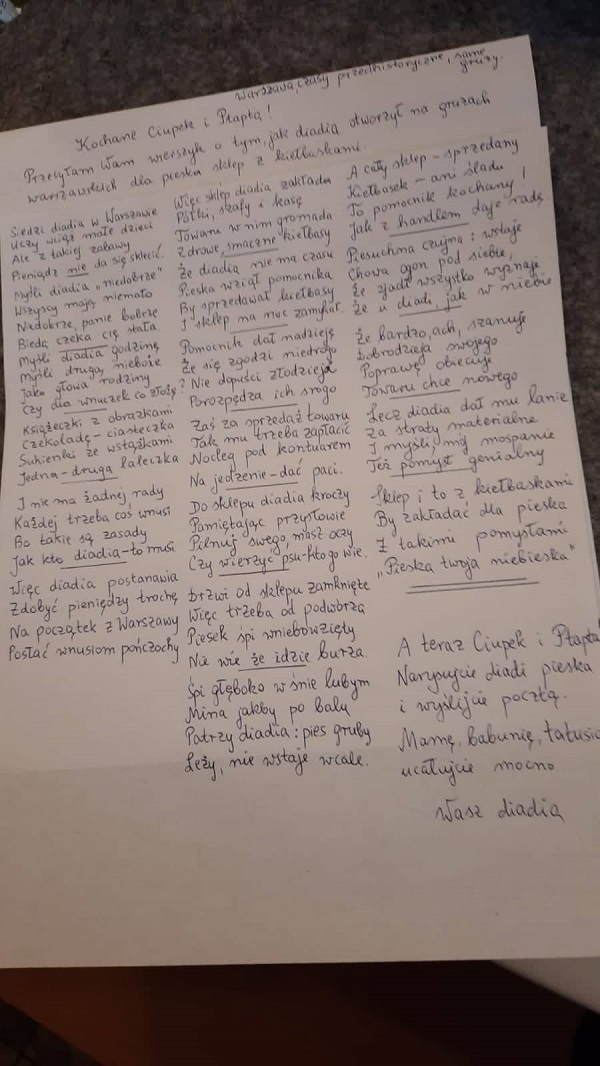 Warszawa, czasy przedhistoryczne, same
gruzy.
Kochane Ciupek i Ptaptą!
Przesyłam Wam wierszyk o tym, jak diadia otworzył na gruzach
warszawskich dla pieska sklep z kiełbaskami.
Siedzi diadia w Warszawie
Uczy wciąż małe dzieci
Ale z takiej zabawy
Pieniądz nie da się sklecić.
Myśli diadia „niedobrze"
Wszyscy mają niemało
Niedobrze, panie bobrze
Bieda czeka cię stała.
Myśli diadia godzinę
Myśli drugą, nieboże
Jako głowa rodziny
Czy dla wnuczek co złoży?
Książeczki z obrazkami
Czekoladę – ciasteczka
Sukienki ze wstążkami
Jedna – druga laleczka
I nie ma żadnej rady
Każdej trzeba coś wnusi
Bo takie są zasady
Jak kto diadia – to musi
Więc diadia postanawia
Zdobyć pieniędzy trochę
Na początek z Warszawy
Posłać wnusiom pończochy
Więc sklep diadia zakłada
Półki, szafy i kasę
Towaru w nim gromada
Zdrowe, smaczne kiełbasy
Że diadia nie ma czasu
Pieska wziął pomocnika
By sprzedawał kiełbasy
I sklep na noc zamykał.
Pomocnik dał nadzieję
Że się zgodzi niedrogo
Nie dopuści złodzieja
Porozpędza ich srogo
Zaś za sprzedaż towaru
Tak mu trzeba zapłacić
Nocleg pod kontuarem
Na jedzenie – dać paci.
Do sklepu diadia kroczy
Pamiętając przysłowie
Pilnuj swego, masz oczy
Czy wierzyć psu – kto go wie.
Drzwi od sklepu zamknięte
Więc trzeba od podwórza
Piesek śpi wniebowzięty
Nie wie że idzie burza.
Śpi głęboko w śnie lubym
Mina jakby po balu
Patrzy diadia: pies gruby
Leży, nie wstaje wcale.
A cały sklep – sprzedany
Kiełbasek – ani śladu
To pomocnik kochany!
Jak z handlem daje radę
Piesuchna czujna: wstaje
Chowa ogon pod siebie,
Że zjadł wszystko wyznaje
Że u diadi, jak w niebie
Że bardzo, ach, szanuje
Dobrodzieja swojego
Poprawę obiecuje
Towaru chce nowego
Lecz diadia dał mu lanie
Za straty materialne
I myśli, mój mospanie
Też pomysł genialny
Sklep i to z kiełbaskami
By zakładać dla pieska
Z takimi pomysłami
„Pieska twoja niebieska"
A teraz Ciupek i Ptapta!
Narysujcie diadi pieska
i wyślijcie pocztą.
Mamę, babunię, tatusia
ucałujcie mocno
Wasz diadia